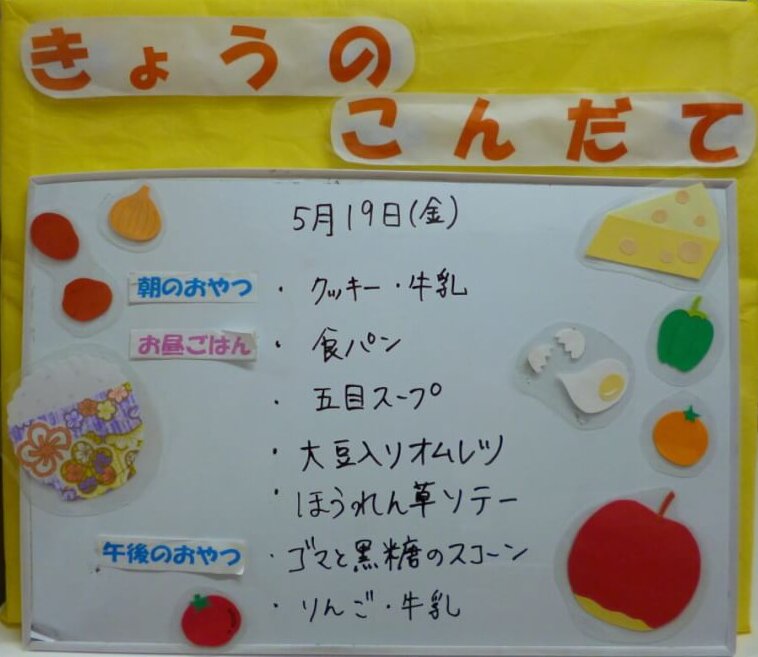 きょうの
こんだて
5月19日(金)
朝のおやつ ・ クッキー・牛乳
お昼ごはん ・ 食パン
・ 五目スープ
・ 大豆入りオムレツ
・ ほうれん草ソテー
午後のおやつ ・ ゴマと黒糖のスコーン
・ りんご・牛乳